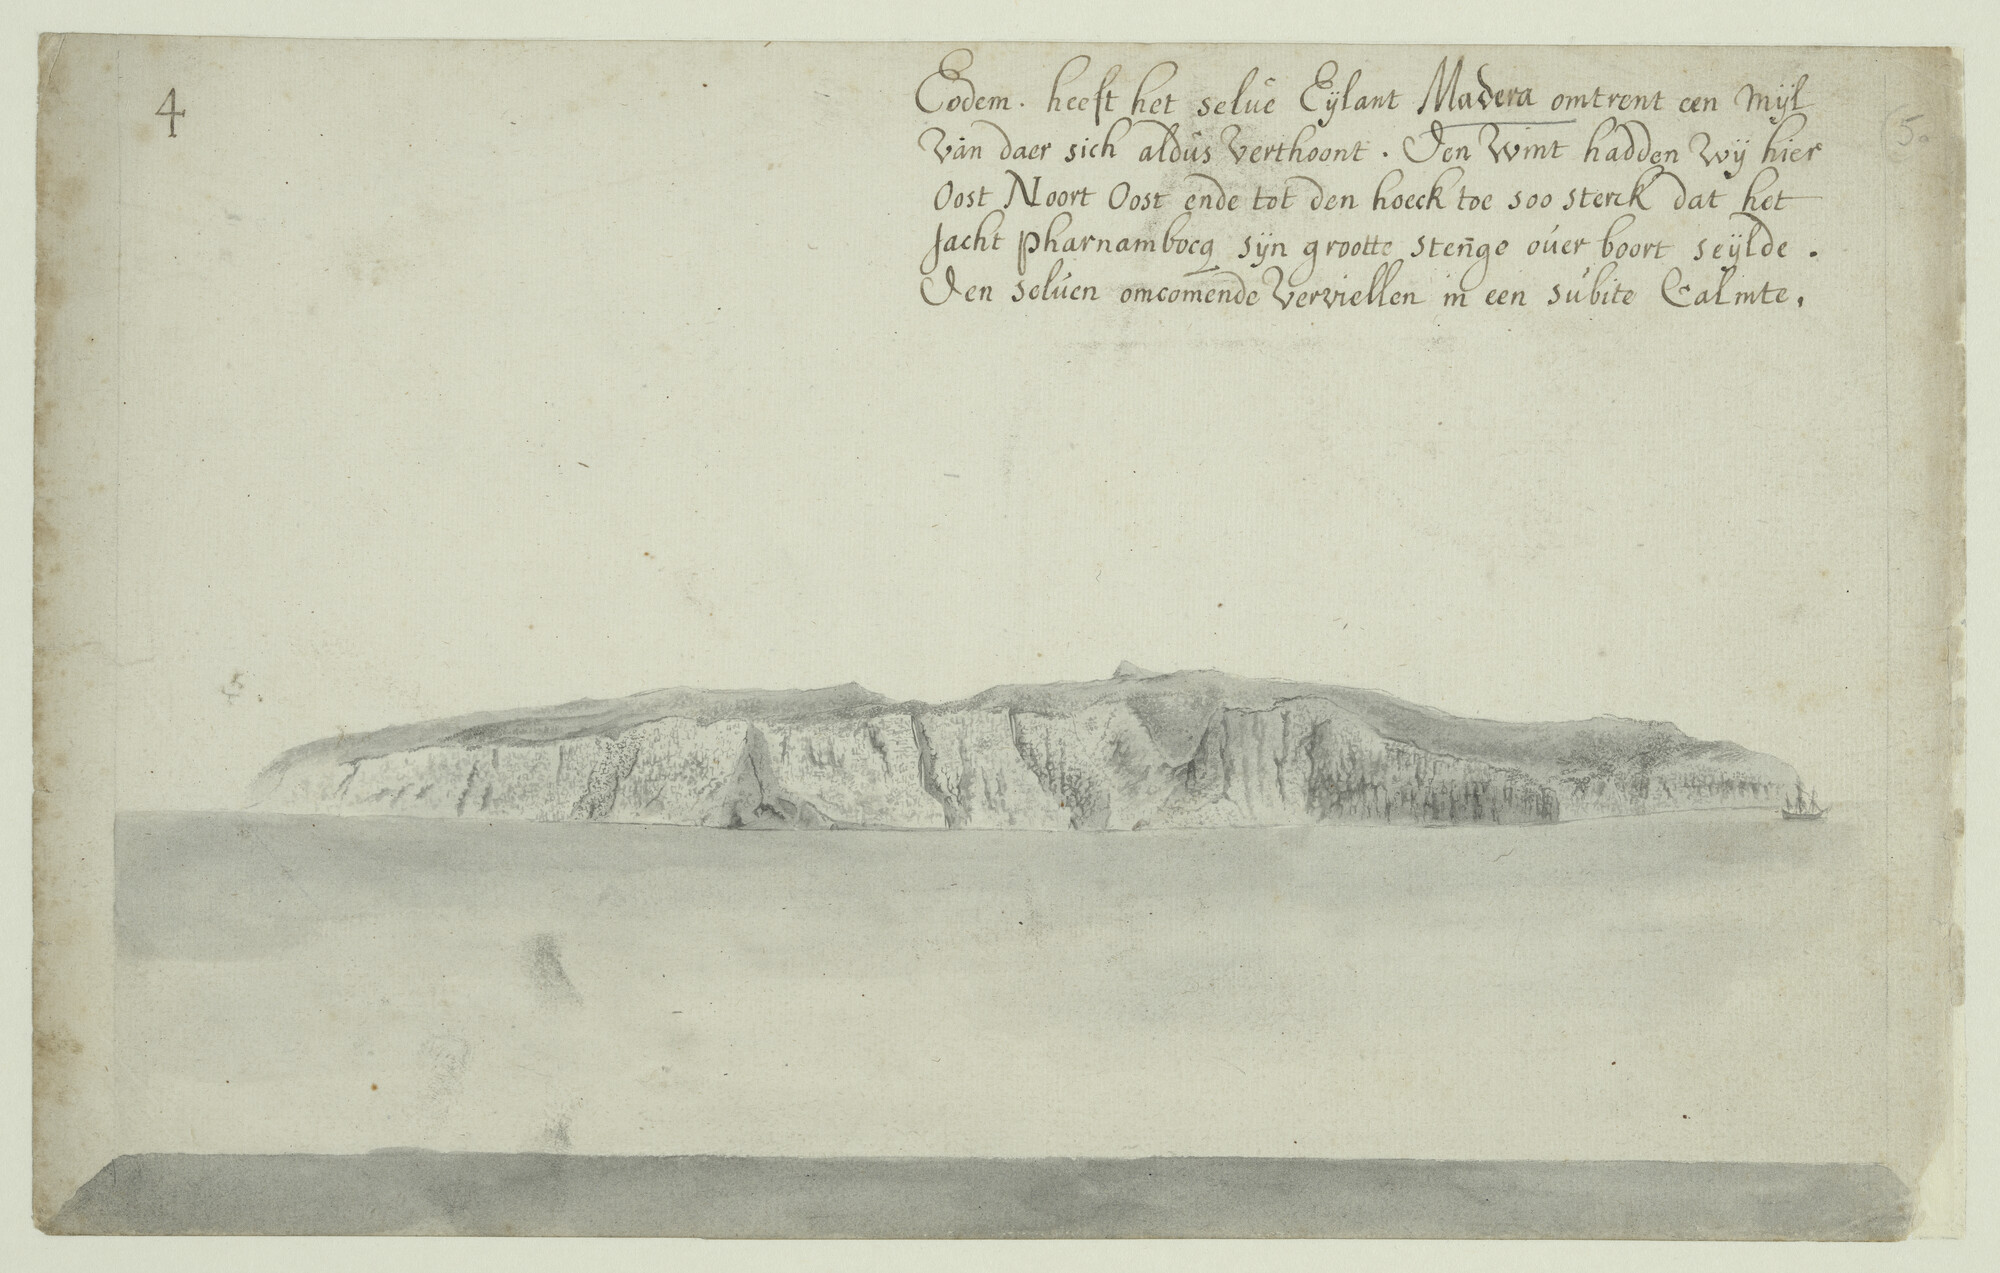 4
Eodem. heeft het selue Eÿlant Madera omtrent een Mÿl
Van daer sich aldus Verthoont. Den Wint hadden Wÿ hier
Oost Noort Oost ende tot den hoeck toe soo sterck dat het
Jacht Pharnambocq sÿn grootte stenge ouer boort seÿlde.
Den seluen omcomende Vervielen in een subite Calmte,
5.